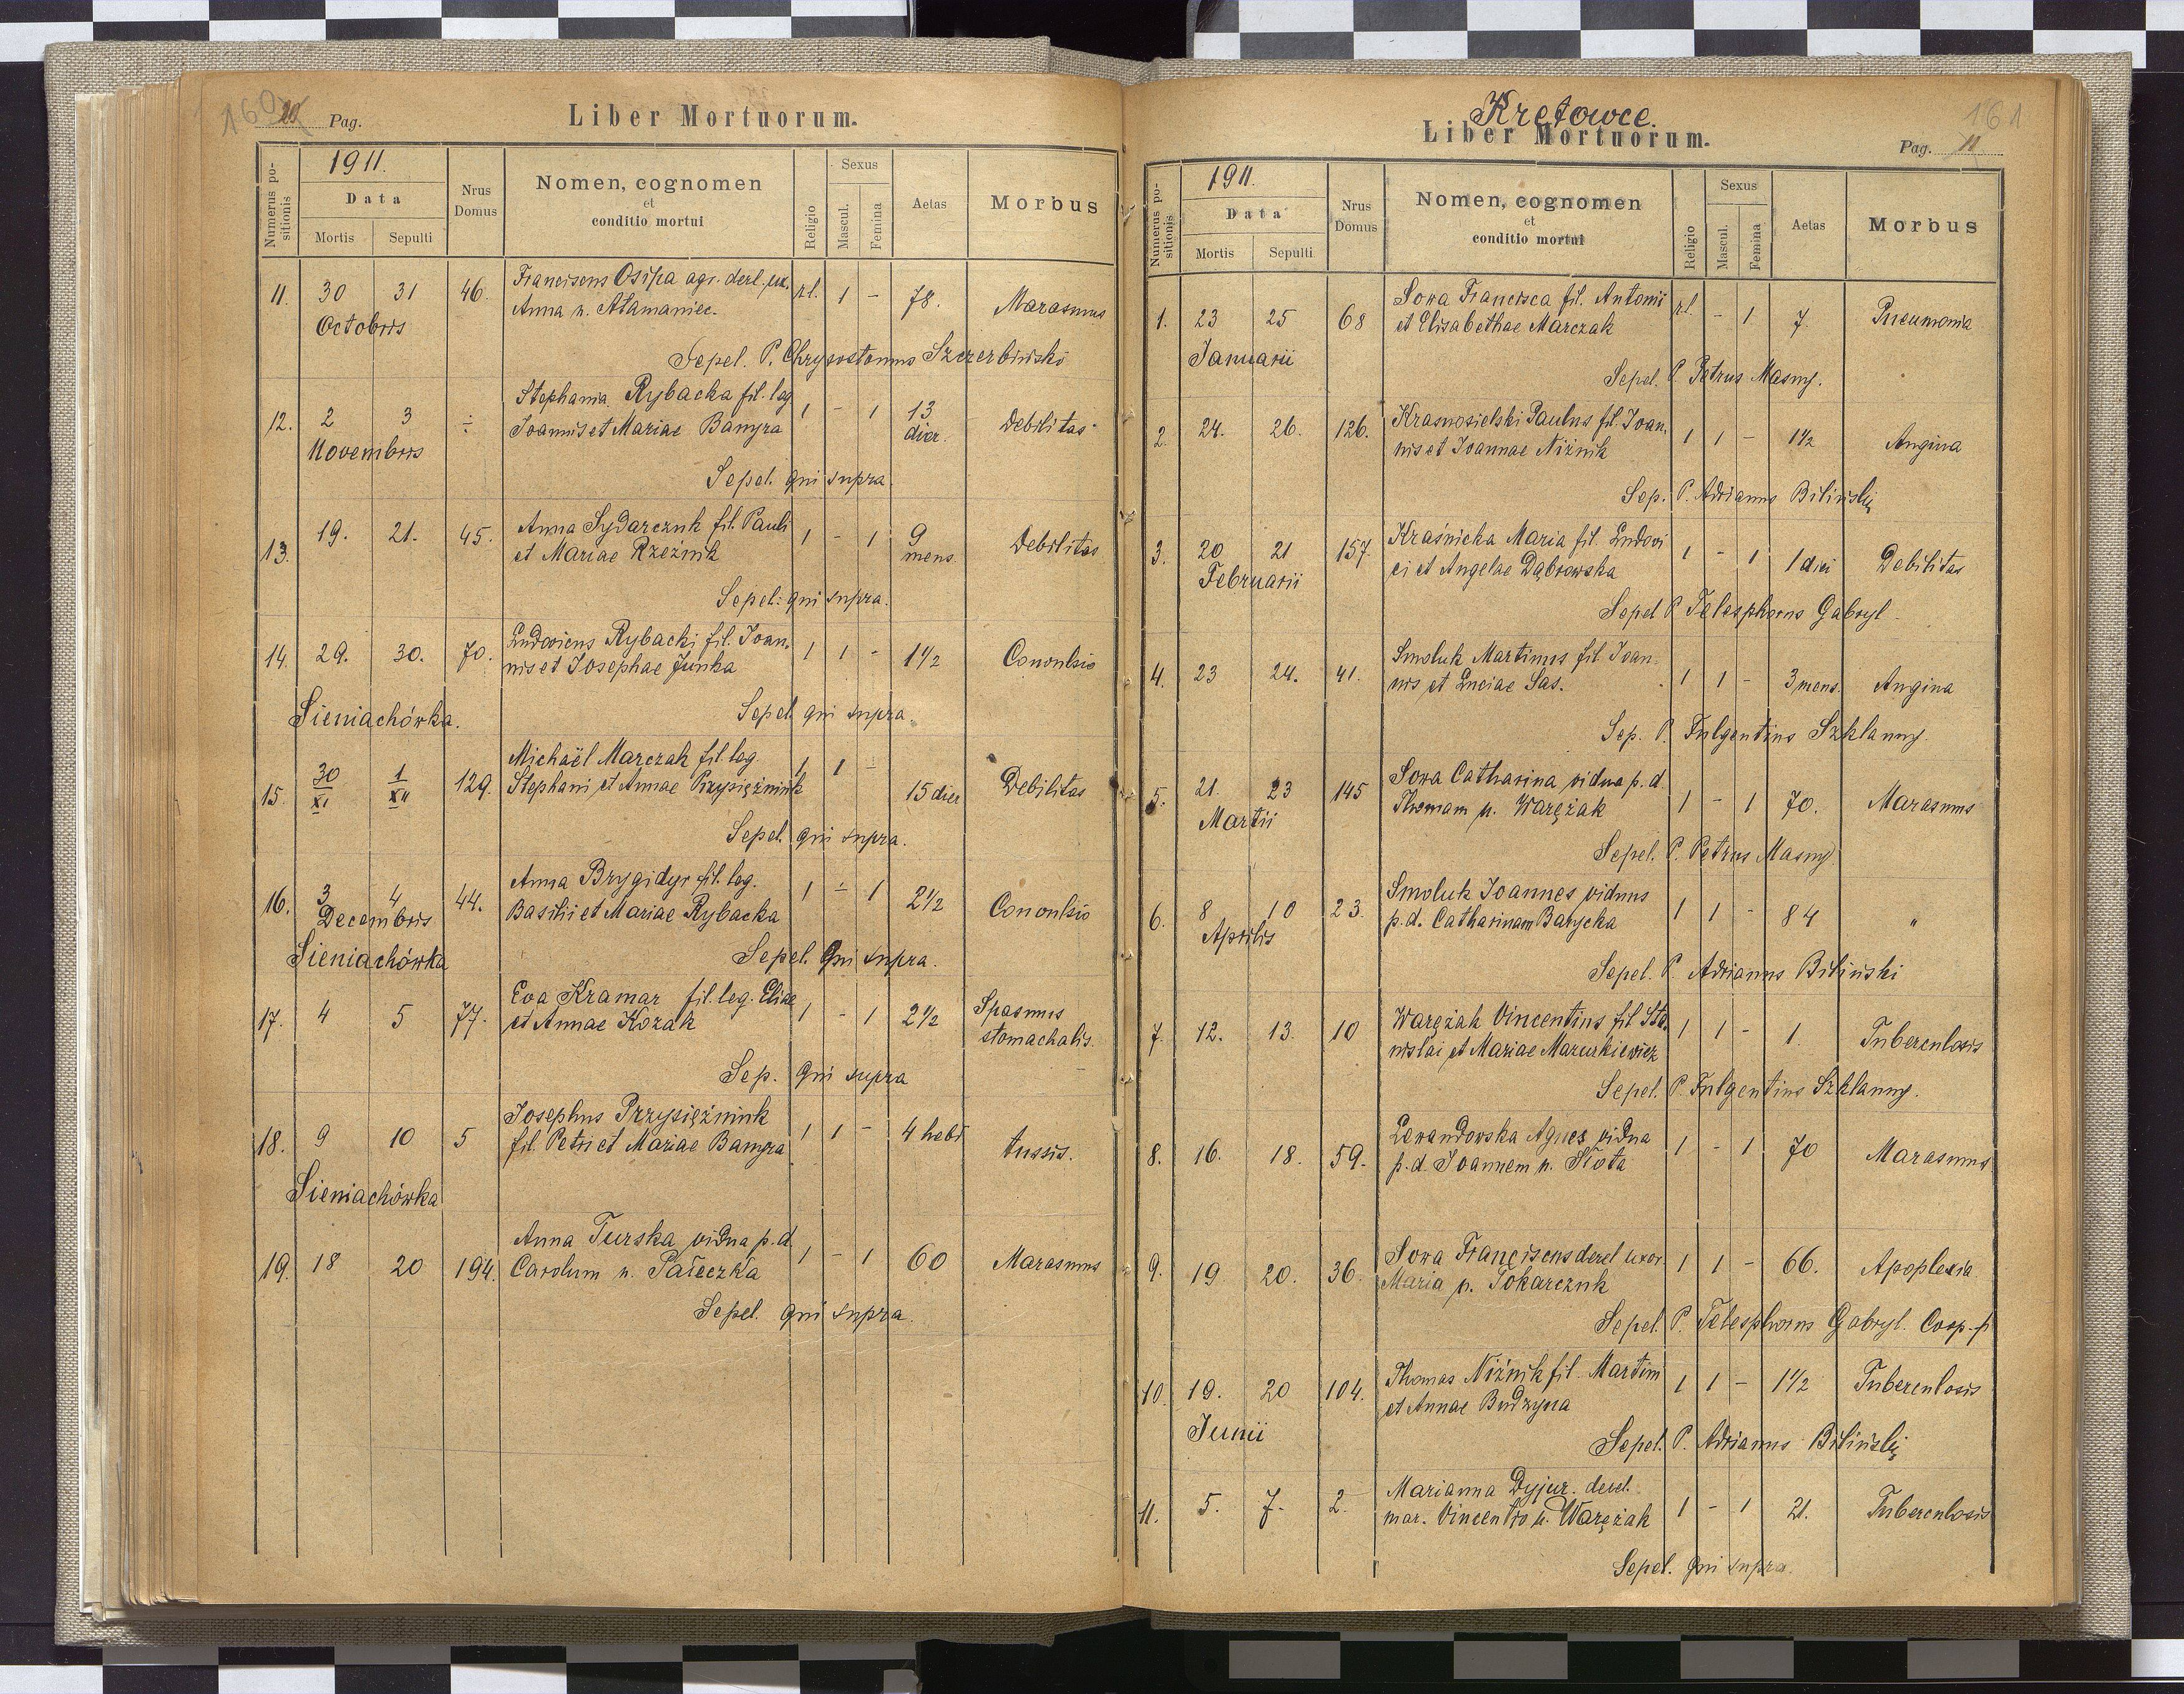 160 Pag. Liber Mortuorum.
Numerus positionis 1911. Data Mortis Sepulti Nrus Domus Nomen, cognomen et conditio mortui Religio Sexus Mascul. Femina Aetas Morbus
11. 30 31 46. Franciscus Osipa agr. derl. ux. rl. 1 - 78. Marasmus
Octobris Anna n. Atamaniec.
Sepel. P. Chrysostomus Szczerbiński
Stephania Rybacka fil. leg
12. 2 3 ÷ Joannis et Mariae Banyra 1 - 1 13 dier. Debilitas
Novembris
Sepel. qui supra.
Anna Sydarczuk fil. Pauli
13. 19. 21. 45. et Mariae Rzeźnik 1 - 1 9 mens. Debilitas
Sepel: qui supra.
Ludovicus Rybacki fil. Joan.
14. 29. 30. 70. nis et Josephae Junka 1 1 - 1½ Convulsio
Sieniachówka. Sepel qui supra.
Michaël Marczak fil. leg.
15. 30/XI 1/XII 129. Stephani et Annae Przysiężniuk 1 1 - 15 dier Debilitas
Sepel. qui supra.
Anna Brygidyr fil. leg.
16. 3 4 44. Basilii et Mariae Rybacka 1 ÷ 1 2½ Convulsio
Decembris
Sieniachówka Sepel. Qui supra.
Eva Kramar fil. leg. Eliae
17. 4 5 77. et Annae Kozak 1 - 1 2½ Spasmus stomachalis.
Sep. Qui supra
Josephus Przysiężniuk
18. 9 10 5 fil. Petri et Mariae Banyra 1 1 - 4 hebd tussis.
Sieniachówka
Anna Turska vidua p.d.
19. 18 20 194. Carolum n. Pałeczka 1 - 1 60 Marasmus
Sepel. qui supra.
Kretowce.
Liber Mortuorum. Pag. 11 161
Numerus positionis 1911. Data Mortis Sepulti Nrus Domus Nomen, cognomen et conditio mortui Religio Sexus Mascul. Femina Aetas Morbus
Sowa Francisca fil. Antonii
1. 23 25 68 et Elisabethae Marczak rl. - 1 7. Pneumonia
Januarii
Sepel. P. Petrus Masny.
Krasnosielski Paulus fil. Joan.
2. 24. 26. 126. nis et Joannae Niźnik 1 1 - 1½ Angina
Sep. P. Adrianus Biliński
Kraśnicka Maria fil. Ludovi
3. 20 21 157. ci et Angelae Dąbrowska 1 - 1 1 diei Debilitas
Februarii
Sepel P. Telesphorus Gabryl.
Smoluk Martinus fil. Joan.
4. 23 24. 41. nis et Luciae Sas. 1 1 - 3 mens. Angina
Sep. P. Fulgentius Szklanny.
Sowa Catharina vidua p.d.
5. 21. 23 145 Thomam n. Waręzak 1 - 1 70. Marasmus
Martii
Sepel. P. Petrus Masny.
Smoluk Joannes viduus
6. 8 10 23. p.d. Catharinam Barycka 1 1 - 84 "
Aprilis
Sepel. P. Adrianus Biliński
Waręzak Vincentius fil Sta.
7. 12. 13. 10 nislai et Mariae Mazurkiewicz 1 1 - 1. Tuberculosis
Sepel. P. Fulgentius Szklanny.
Lewandowska Agnes vidua
8. 16. 18. 59. p.d. Joannem n. Słota 1 - 1 70 Marasmus
Sowa Franciscus derel uxor
9. 19 20. 36. Maria n. Tokarczuk 1 1 - 66. Apoplexia
Sepel. P. Telesphorus Gabryl. Coop.
Thomas Niźnik fil. Martini
10. 19. 20 104. et Annae Budzyna 1 1 - 1½ Tuberculosis
Junii
Sepel. P. Adrianus Biliński
Marianna Dyjur. derel.
11. 5. 7. 2. mar. Vincentio n. Waręzak 1 - 1 21. Tuberculosis
Sepel. qui supra.